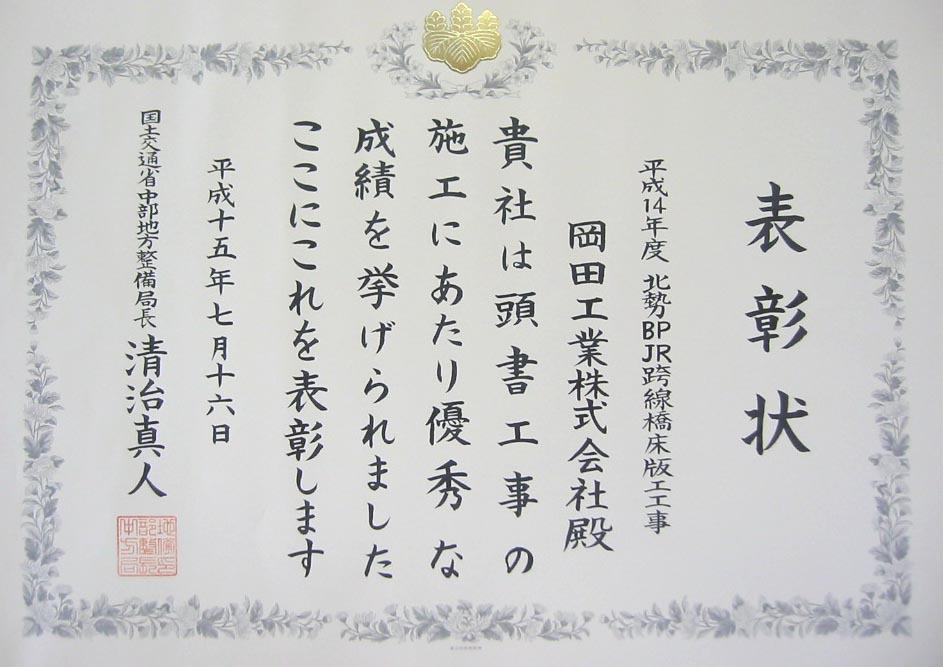 表彰状
平成14年度 北勢BPJR跨線橋床版工工事
岡田工業株式会社殿
貴社は頭書工事の
施工にあたり優秀な
成績を挙げられました
ここにこれを表彰します
平成十五年七月十六日
国土交通省中部地方整備局長 清治真人